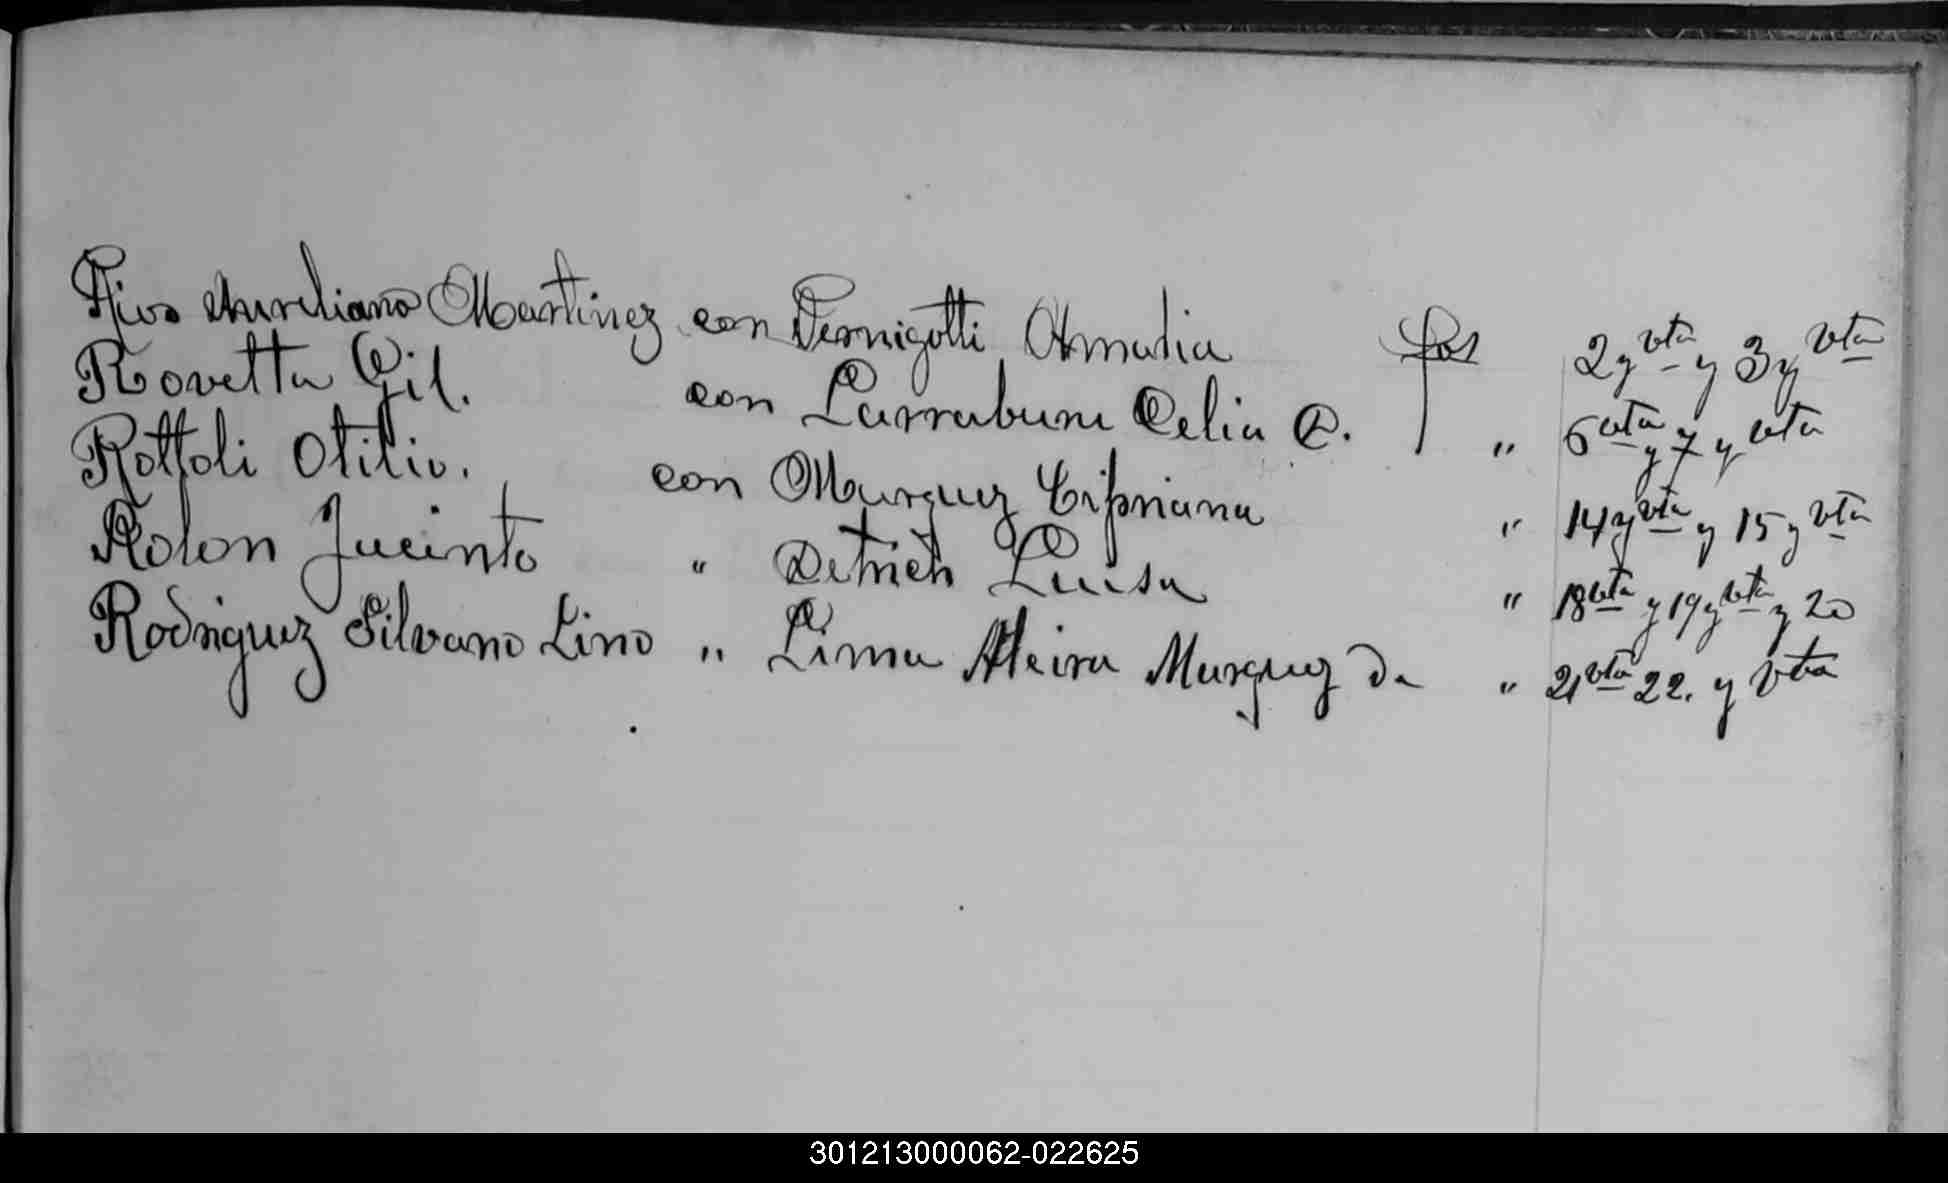 Rios Aureliano Martinez con Pernigotti Amalia fos 2 y vta y 3 y vta
Rovetta Gil. con Larraburu Celia C. " 6 vta y 7 y vta
Rottoli Otilio. con Marquez Cipriana " 14 y vta y 15 y vta
Rolon Jacinto " Detrich Luisa " 18 vta y 19 y vta y 20
Rodriguez Silvano Lino " Lima Alcira Marquez da " 21 vta 22. y vta
301213000062-022625